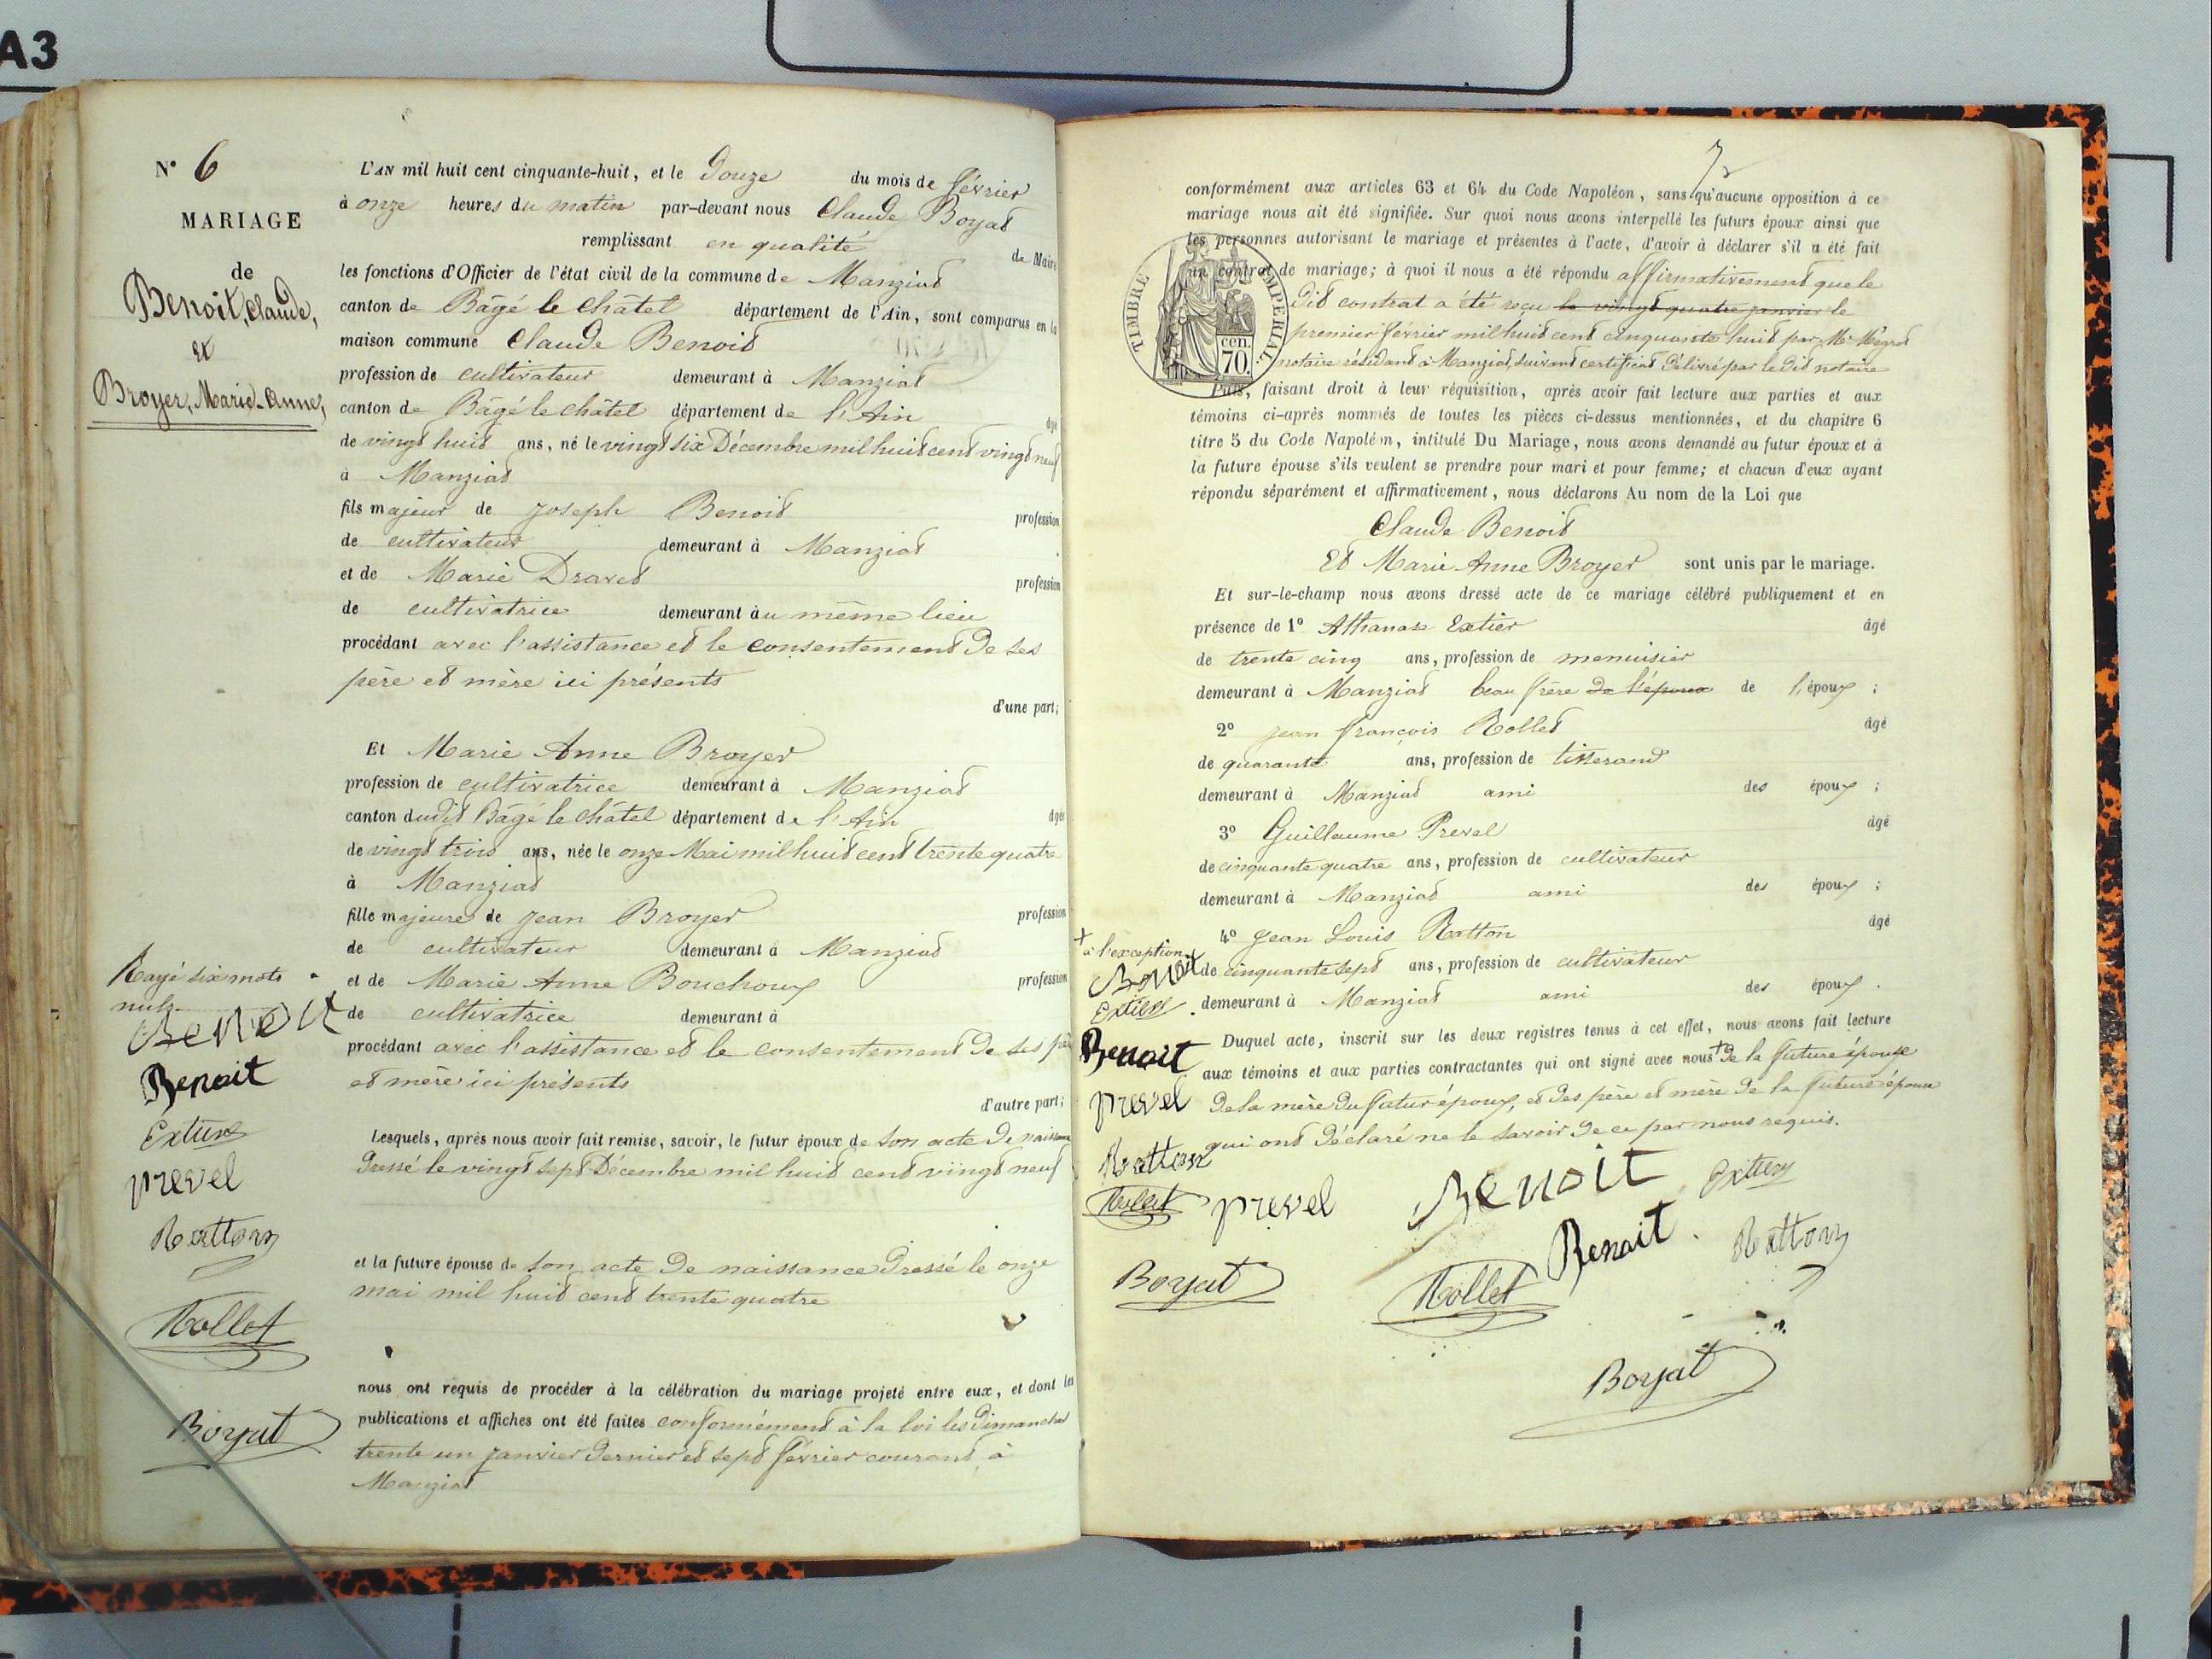 A3
N° 6
MARIAGE
de
Benoit, Claude,
Et
Broyer, Marie-Anne,
L'AN mil huit cent cinquante-huit, et le Douze du mois de février
à onze heures du matin par-devant nous Claude Boyat
remplissant en qualité de Maire
les fonctions d'Officier de l'état civil de la commune de Manziat
canton de Bâgé le Châtel département de l'Ain, sont comparus en la
maison commune Claude Benoit
profession de cultivateur demeurant à Manziat
canton de Bâgé le Châtel département de l'Ain âgé
de vingt huit ans, né le vingt six Décembre mil huit cent vingt neuf
à Manziat
fils majeur de Joseph Benoit profession
de cultivateur demeurant à Manziat
et de Marie Dravet profession
de cultivatrice demeurant au même lieu
procédant avec l'assistance et le consentement de ses
père et mère ici présents
d'une part;
Et Marie Anne Broyer
profession de cultivatrice demeurant à Manziat
canton dudit Bâgé le Châtel département de l'Ain âgée
de vingt trois ans, née le onze Mai mil huit cent trente quatre
à Manziat
fille majeure de Jean Broyer profession
de cultivateur demeurant à Manziat
et de Marie Anne Bouchoux profession
de cultivatrice demeurant à
procédant avec l'assistance et le consentement de ses père
et mère ici présents
d'autre part;
Lesquels, après nous avoir fait remise, savoir, le futur époux de son acte de naissance
dressé le vingt sept Décembre mil huit cent vingt neuf
et la future épouse de son acte de naissance dressé le onze
mai mil huit cent trente quatre
nous ont requis de procéder à la célébration du mariage projeté entre eux, et dont les
publications et affiches ont été faites conformément à la loi les dimanches
trente un janvier dernier et sept février courant, à
Manziat
Rayé six mots
nuls
Benoit
Benoit
Extier
prevel
Ratton
Rollet
Boyat
7
conformément aux articles 63 et 64 du Code Napoléon, sans qu'aucune opposition à ce
mariage nous ait été signifiée. Sur quoi nous avons interpellé les futurs époux ainsi que
les personnes autorisant le mariage et présentes à l'acte, d'avoir à déclarer s'il a été fait
un contrat de mariage; à quoi il nous a été répondu affirmativement que le
dit contrat a été reçu le vingt quatre janvier le
premier février mil huit cent cinquante huit par Me
notaire résidant à Manziat, suivant certificat délivré par le dit notaire
TIMBRE IMPERIAL
cen.
70.
Puis, faisant droit à leur réquisition, après avoir fait lecture aux parties et aux
témoins ci-après nommés de toutes les pièces ci-dessus mentionnées, et du chapitre 6
titre 5 du Code Napoléon, intitulé Du Mariage, nous avons demandé au futur époux et à
la future épouse s'ils veulent se prendre pour mari et pour femme; et chacun d'eux ayant
répondu séparément et affirmativement, nous déclarons Au nom de la Loi que
Claude Benoit
Et Marie Anne Broyer sont unis par le mariage.
Et sur-le-champ nous avons dressé acte de ce mariage célébré publiquement et en
présence de 1° Athanase Extier âgé
de trente cinq ans, profession de menuisier
demeurant à Manziat beau frère de l'époux de l'époux ;
2° Jean François Rollet âgé
de quarante ans, profession de tisserand
demeurant à Manziat ami des époux ;
3° Guillaume Prevel âgé
de cinquante quatre ans, profession de cultivateur
demeurant à Manziat ami des époux ;
4° Jean Louis Ratton âgé
de cinquante sept ans, profession de cultivateur
demeurant à Manziat ami des époux .
Duquel acte, inscrit sur les deux registres tenus à cet effet, nous avons fait lecture
aux témoins et aux parties contractantes qui ont signé avec nous + de la future épouse
de la mère du futur époux, et des père et mère de la future épouse
qui ont déclaré ne le savoir de ce par nous requis.
+
à l'exception
Benoit
Extier
Benoit
prevel
Ratton
Rollet
prevel
Benoit
Extier
Benoit
Ratton
Boyat
Rollet
Boyat